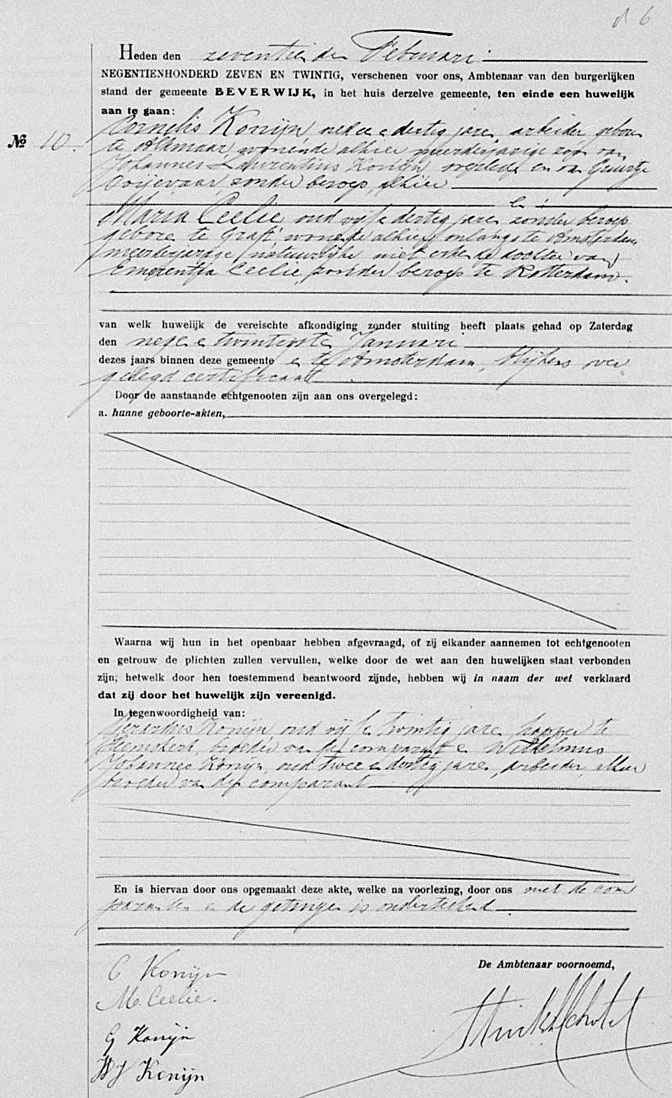 Heden den zeventienden Februari
NEGENTIENHONDERD ZEVEN EN TWINTIG, verschenen voor ons, Ambtenaar van den burgerlijken
stand der gemeente BEVERWIJK, in het huis derzelve gemeente, ten einde een huwelijk
aan te gaan:
№ 10.
Cornelis Konijn, en dertig jaren, arbeider geboren
te Alkmaar wonende alhier meerderjarige zoon van
Johannes Laurentius Konijn, overleden en van Geertje
zonder beroep, alhier
Maria Ceelie oud vijf en dertig jaren zonder beroep
geboren te Graft, wonende alhier, onlangs te Amsterdam,
meerderjarige natuurlijke niet erkende dochter van
Emerentia Ceelie, zonder beroep te Rotterdam.
van welk huwelijk de vereischte afkondiging zonder stuiting heeft plaats gehad op Zaterdag
den negen en twintigste Januari
dezes jaars binnen deze gemeente en te Amsterdam, blijkens over-
gelegd certificaat
Door de aanstaande echtgenooten zijn aan ons overgelegd:
a. hunne geboorte-akten,
Waarna wij hun in het openbaar hebben afgevraagd, of zij elkander aannemen tot echtgenooten
en getrouw de plichten zullen vervullen, welke door de wet aan den huwelijken staat verbonden
zijn; hetwelk door hen toestemmend beantwoord zijnde, hebben wij in naam der wet verklaard
dat zij door het huwelijk zijn vereenigd.
In tegenwoordigheid van:
Gerardus Konijn, oud vijf en twintig jaren, te
Heemskerk, broeder van den comparant en Wilhelmus
Johannes Konijn oud twee en dertig jaren, arbeider, alhier
broeder van den comparant
En is hiervan door ons opgemaakt deze akte, welke na voorlezing, door ons met de com
paranten en de getuigen is onderteekend.
De Ambtenaar voornoemd,
C Konijn
M. Ceelie.
G Konijn
W J Konijn